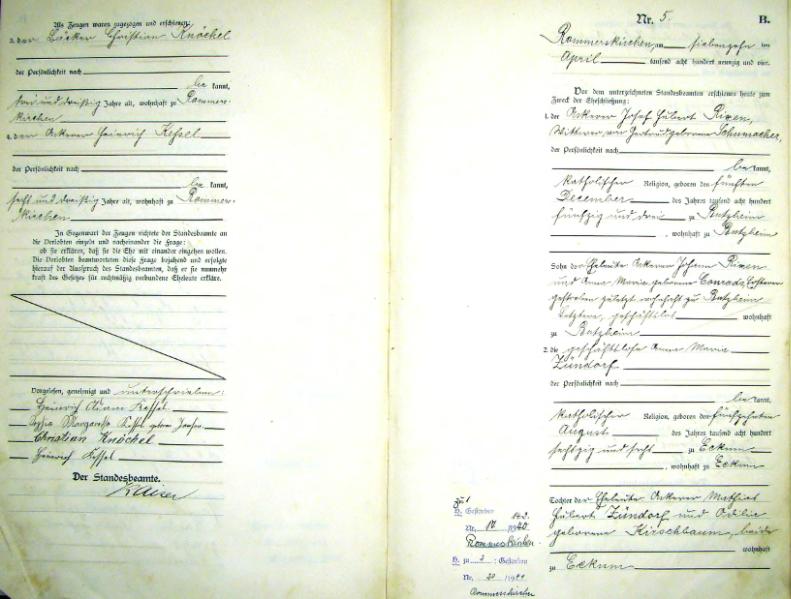 Als Zeugen waren zugezogen und erschienen:
3. der Bäcker Christian Knöchel
der Persönlichkeit nach
be kannt,
drei und dreißig Jahre alt, wohnhaft zu Rommers-
kirchen
4. der Ackerer Heinrich Kessel
der Persönlichkeit nach
be kannt,
sechs und dreißig Jahre alt, wohnhaft zu Rommers-
kirchen
In Gegenwart der Zeugen richtete der Standesbeamte an
die Verlobten einzeln und nacheinander die Frage:
ob sie erklären, daß sie die Ehe mit einander eingehen wollen.
Die Verlobten beantworteten diese Frage bejahend und erfolgte
hierauf der Ausspruch des Standesbeamten, daß er sie nunmehr
kraft des Gesetzes für rechtmäßig verbundene Eheleute erkläre.
Vorgelesen, genehmigt und unterschrieben:
Heinrich Adam Kessel
Margaretha Kessel geborene
Christian Knöchel
Heinrich Kessel
Der Standesbeamte.
Kaiser
Nr. 5. B.
Rommerskirchen, am siebenzehn ten
April tausend acht hundert neunzig und vier.
Vor dem unterzeichneten Standesbeamten erschienen heute zum
Zweck der Eheschließung:
1. der Ackerer Josef Hubert Rixen,
Wittwer von Gertrud geborene Schumacher,
der Persönlichkeit nach
be kannt,
katholischer Religion, geboren den fünften
December des Jahres tausend acht hundert
fünfzig und drei zu Butzheim
, wohnhaft zu Butzheim
Sohn der Eheleute Ackerer Johann Rixen
und Anna Maria geborene Conrads, Ersterer
gestorben zuletzt wohnhaft zu Butzheim
Letztere, geschäftslos wohnhaft
zu Butzheim
2. die geschäftslose Anna Maria
Zündorf
der Persönlichkeit nach
be kannt,
katholischer Religion, geboren den fünfzehnten
August des Jahres tausend acht hundert
sechszig und sechs zu Eckum
, wohnhaft zu Eckum
Tochter der Eheleute Ackerer Mathias
Hubert Zündorf und Odilia
geborene Kirschbaum, beide
wohnhaft
zu Eckum
zu 1
Gestorben
Nr. 10 1940
Rommerskirchen
zu 2 : Gestorben
Nr. 20 19
Rommerskirchen